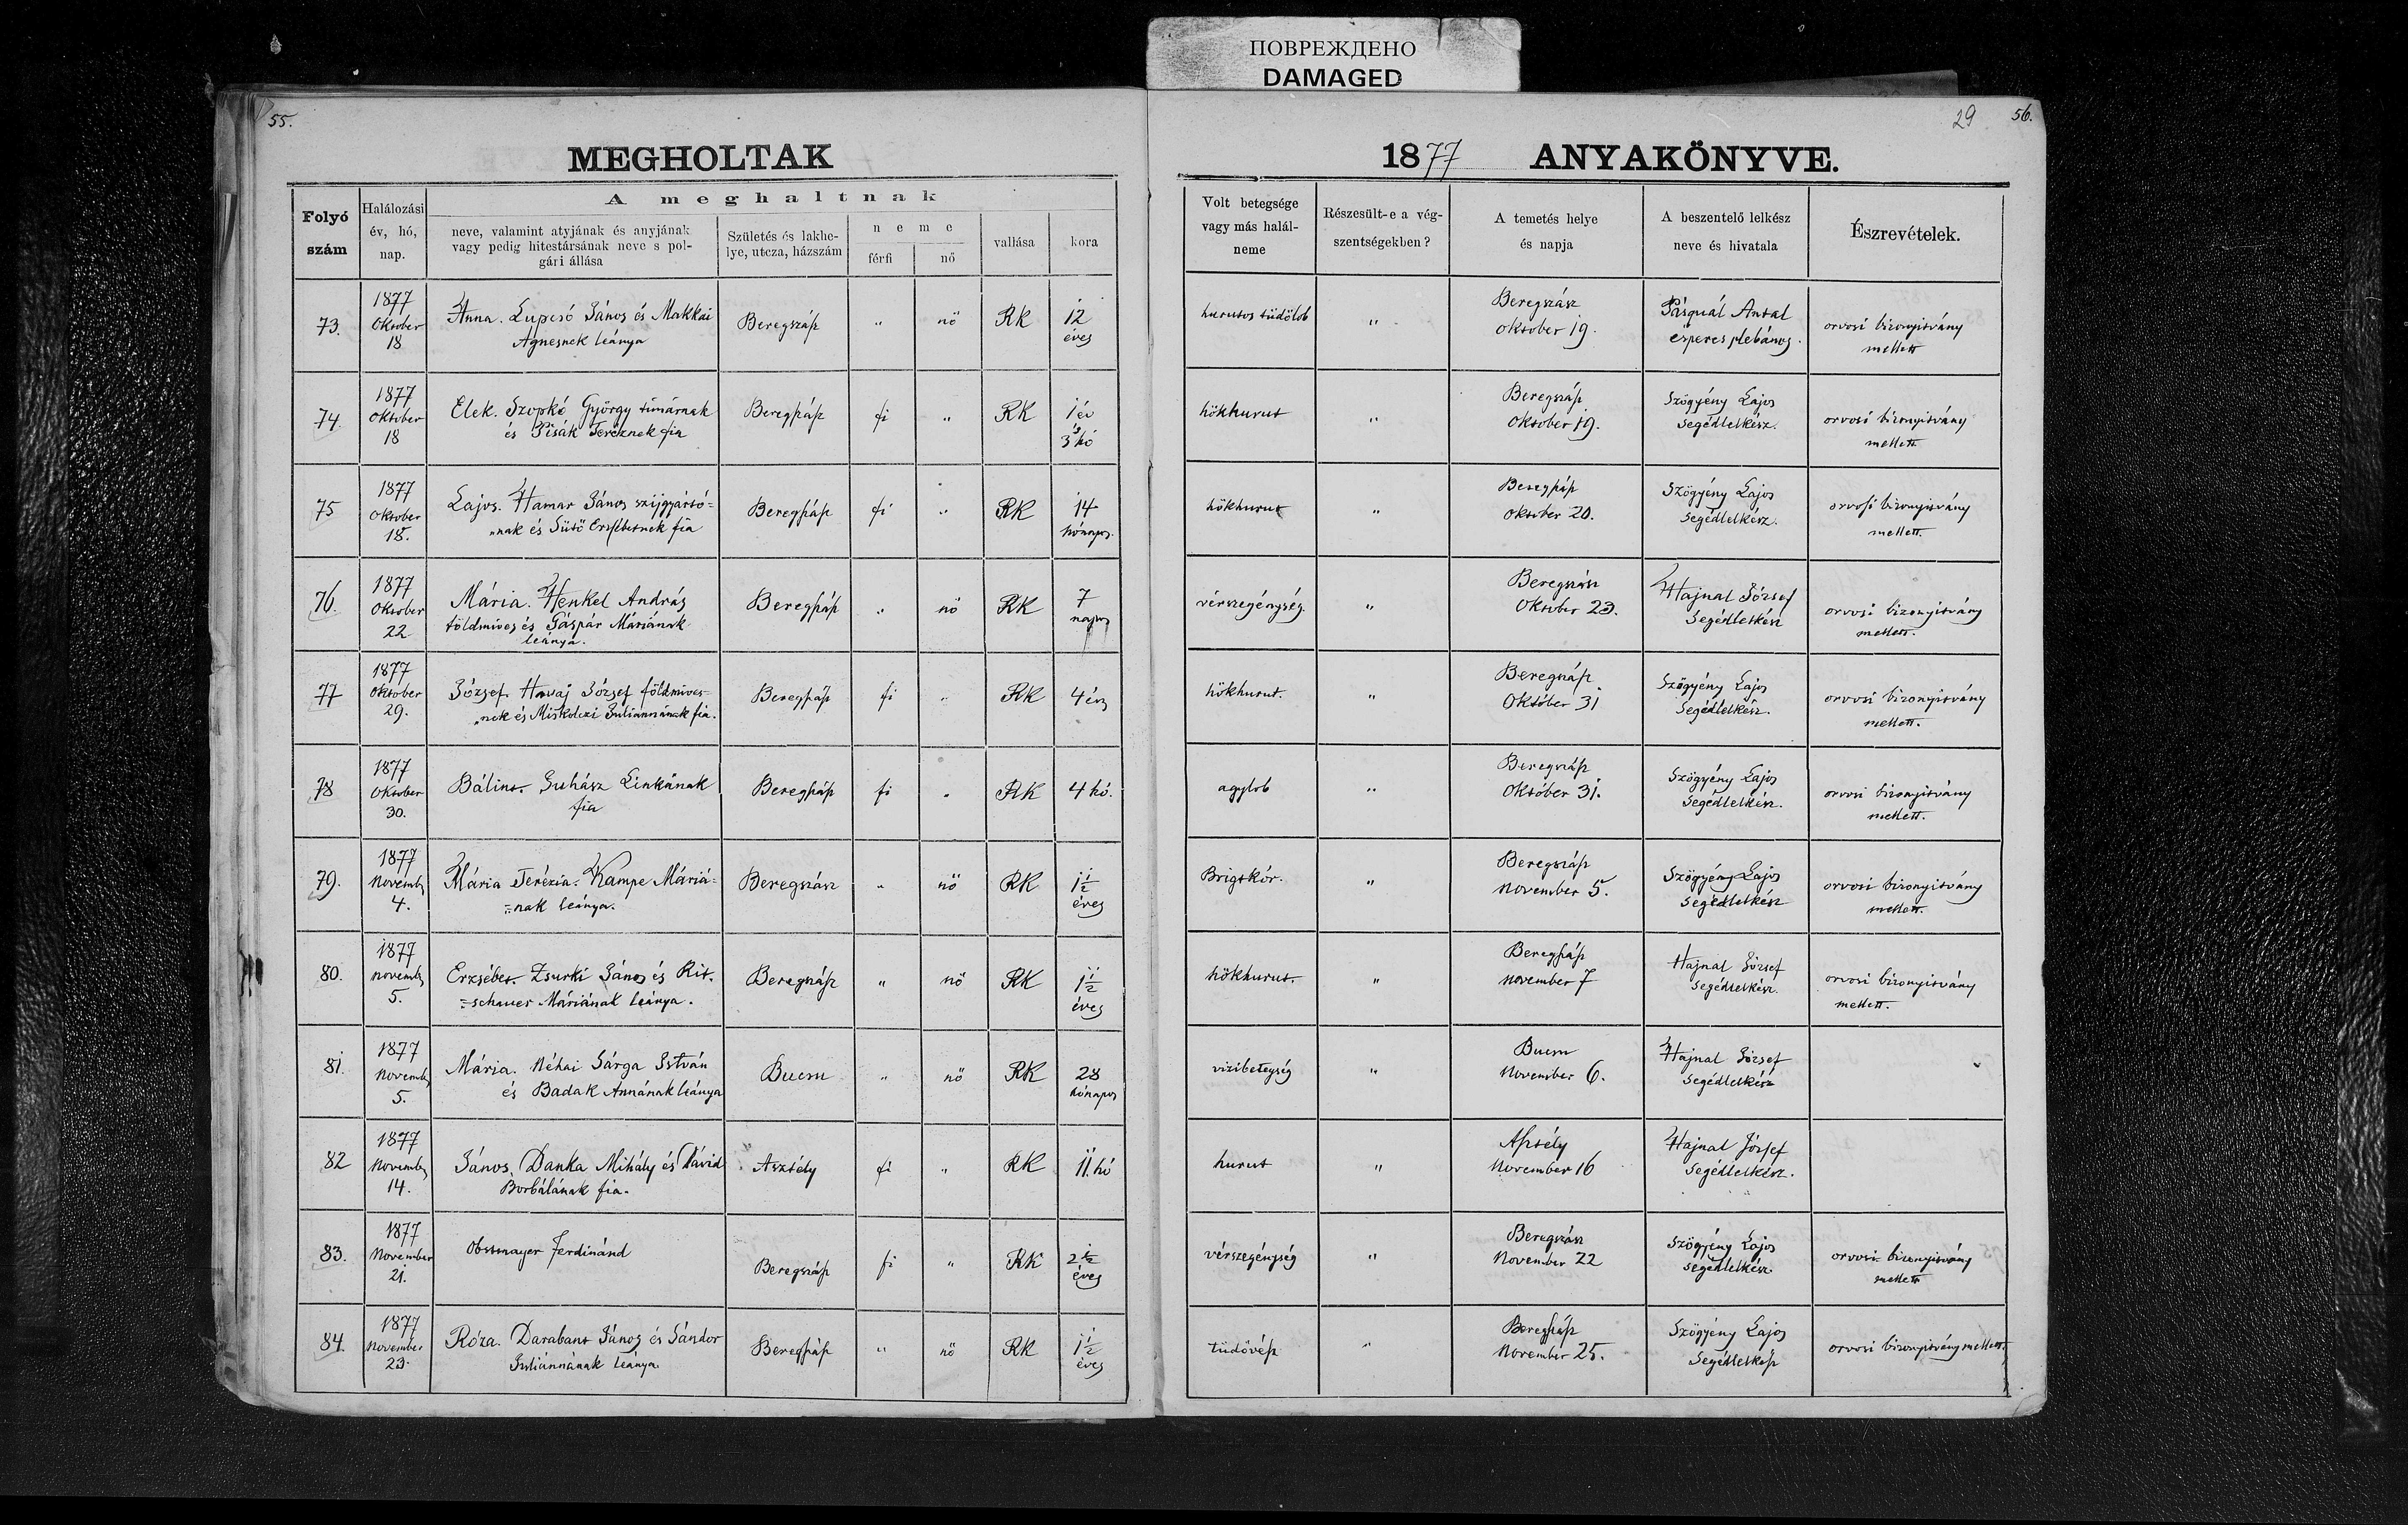 ПОВРЕЖДЕНО
DAMAGED
55.
MEGHOLTAK
Folyó szám
Halálozási év, hó, nap.
A meghaltnak
neve, valamint atyjának és anyjának vagy pedig hitestársának neve s polgári állása
Születés és lakhelye, utcza, házszám
neme
férfi
nő
vallása
kora
73. 1877 Oktober 18 Anna. Lupcsó János és Makkai Ágnesnek leánya Beregszász " nő RK 12 éves
74. 1877 Oktober 18 Elek. Szopkó György timárnak és Pisák Teréznek fia Beregszász fi " RK 1 év 3 hó
75 1877 Oktober 18. Lajos. Hamar János szijgyártó=nak és Sütő Erzsébetnek fia Beregszász fi " RK 14 hónapos.
76. 1877 Oktober 22 Mária. Henkel András földmives és Gáspár Máriának leánya. Beregszász " nő RK 7 napos
77 1877 Oktober 29. József. Havaj József földmives=nek és Miskolczi Juliannának fia. Beregszász fi " RK 4 éves
78 1877 Oktober 30. Bálint. Juhász Linkának fia Beregszász fi " RK 4 hó.
79. 1877 Novemb. 4. Mária Terézia. Kampe Máriá=nak leánya. Beregszász " nő RK 1½ éves
80. 1877 Novemb. 5. Erzsébet. Zsurki János és Rit=schauer Máriának leánya. Beregszász " nő RK 1½ éves
81. 1877 Novemb. 5. Mária. Néhai Sárga István és Badak Annának leánya Bucsu " nő RK 28 hónapos
82 1877 Novemb. 14. János. Danka Mihály és Dávid Borbálának fia. Asztély fi " RK 11 hó
83. 1877 November 21. Obstmayer Ferdinánd Beregszász fi " RK 2½ éves
84. 1877 November 23. Róza. Darabant János és Sándor Juliánnának leánya. Beregszász " nő RK 1½ éves
29 56.
1877 ANYAKÖNYVE.
Volt betegsége vagy más halálneme
Részesült-e a végszentségekben?
A temetés helye és napja
A beszentelő lelkész neve és hivatala
Észrevételek.
hurutos tüdőlob " Beregszász Oktober 19. Pásquál Antal esperes plebános. orvosi bizonyitvány mellett
hökhurut " Beregszász Oktober 19. Szögyény Lajos segédlelkész. orvosi bizonyitvány mellett
hökhurut " Beregszász Oktober 20. Szögyény Lajos segédlelkész. orvosi bizonyitvány mellett.
vérszegénység. " Beregszász Oktober 23. Hajnal József segédlelkész orvosi bizonyitvány mellett.
hökhurut. " Beregszász Október 31 Szögyény Lajos segédlelkész. orvosi bizonyitvány mellett.
agylob " Beregszász Október 31. Szögyény Lajos segédlelkész. orvosi bizonyitvány mellett.
Brigtkór. " Beregszász November 5. Szögyény Lajos segédlelkész orvosi bizonyitvány mellett.
hökhurut. " Beregszász November 7 Hajnal József segédlelkész. orvosi bizonyitvány mellett.
vizibetegség " Bucsu November 6. Hajnal József segédlelkész
hurut " Asztély November 16 Hajnal József segédlelkész.
vérszegénység " Beregszász November 22 Szögyény Lajos segédlelkész. orvosi bizonyitvány mellett
tüdővész " Beregszász November 25. Szögyény Lajos segédlelkész orvosi bizonyitvány mellett.